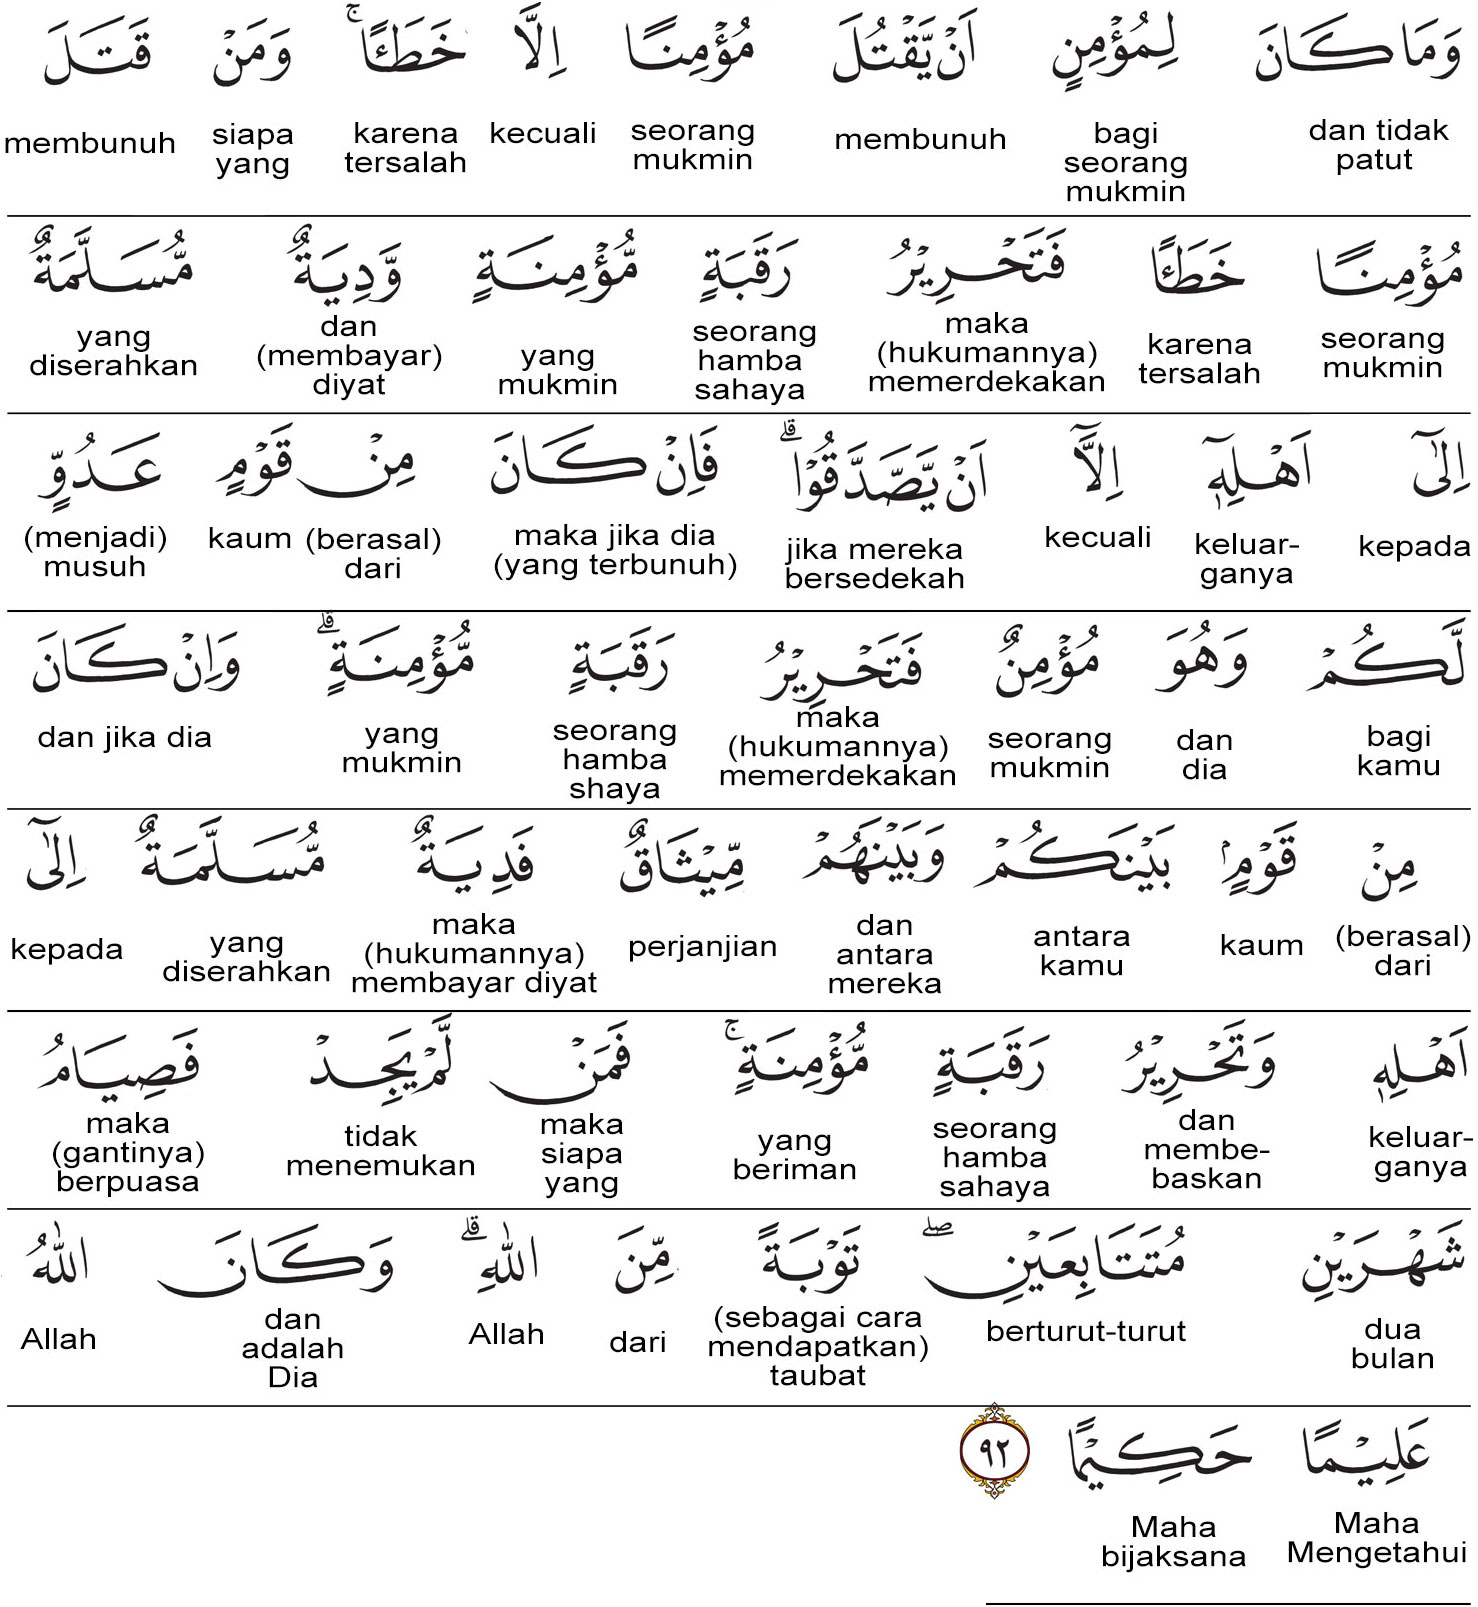 وَمَا كَانَ لِمُؤْمِنٍ اَنْ يَّقْتُلَ مُؤْمِنًا اِلَّا خَطَـًٔا ۚ وَمَنْ قَتَلَ
dan tidak patut bagi seorang mukmin membunuh seorang mukmin kecuali karena tersalah siapa yang membunuh
مُؤْمِنًا خَطَـًٔا فَتَحْرِيْرُ رَقَبَةٍ مُّؤْمِنَةٍ وَّدِيَةٌ مُّسَلَّمَةٌ
seorang mukmin karena tersalah maka (hukumannya) memerdekakan seorang hamba sahaya yang mukmin dan (membayar) diyat yang diserahkan
اِلٰٓى اَهْلِهٖٓ اِلَّآ اَنْ يَّصَّدَّقُوْا ۗ فَاِنْ كَانَ مِنْ قَوْمٍ عَدُوٍّ
kepada keluar-ganya kecuali jika mereka bersedekah maka jika dia (yang terbunuh) (berasal) dari kaum (menjadi) musuh
لَّكُمْ وَهُوَ مُؤْمِنٌ فَتَحْرِيْرُ رَقَبَةٍ مُّؤْمِنَةٍ ۗ وَاِنْ كَانَ
bagi kamu dan dia seorang mukmin maka (hukumannya) memerdekakan seorang hamba shaya yang mukmin dan jika dia
مِنْ قَوْمٍۢ بَيْنَكُمْ وَبَيْنَهُمْ مِّيْثَاقٌ فَدِيَةٌ مُّسَلَّمَةٌ اِلٰٓى
(berasal) dari kaum antara kamu dan antara mereka perjanjian maka (hukumannya) membayar diyat yang diserahkan kepada
اَهْلِهٖ وَتَحْرِيْرُ رَقَبَةٍ مُّؤْمِنَةٍ ۚ فَمَنْ لَّمْ يَجِدْ فَصِيَامُ
keluar-ganya dan membe-baskan seorang hamba sahaya yang beriman maka siapa yang tidak menemukan maka (gantinya) berpuasa
شَهْرَيْنِ مُتَتَابِعَيْنِ ۖ تَوْبَةً مِّنَ اللّٰهِ ۗ وَكَانَ اللّٰهُ
dua bulan berturut-turut (sebagai cara mendapatkan) taubat dari Allah dan adalah Dia Allah
عَلِيْمًا حَكِيْمًا ٩٢
Maha Mengetahui Maha bijaksana